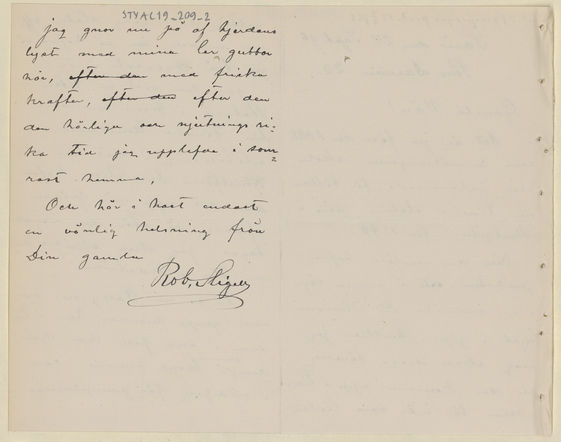 STYAC19_209_2
jag gnor nu på af hjertans
lust med mina ler gubbar
här, efter den med friska
krafter, efter den efter den
den härliga och njutnings ri-
ka tid jag upplefde i som-
ras hemma.
Och här i hast endast
en vänlig helsning från
Din gamla
Rob. Stigell